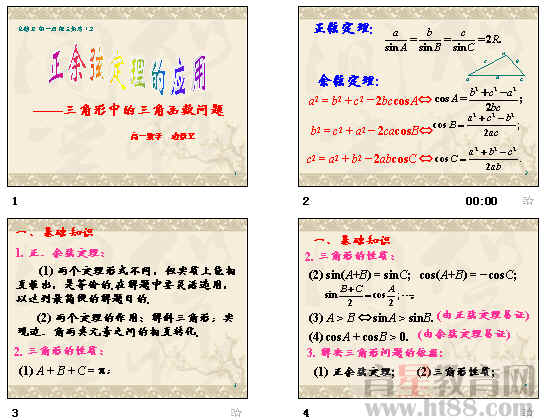 正余弦定理的应用
——三角形中的三角函数问题
1
1
正弦定理:
a/sinA = b/sinB = c/sinC =2R.
余弦定理:
a²=b²+c²-2bccosA⇔ cosA=(b²+c²-a²)/2bc;
b²=c²+a²-2cacosB⇔ cosB=(a²+c²-b²)/2ac;
c²=a²+b²-2abcosC⇔ cosC=(a²+b²-c²)/2ab.
2
2
00:00
一、基础知识
1. 正、余弦定理:
(1) 两个定理形式不同,但实质上能相
互推出,是等价的.在解题中要灵活运用,
以达到最简便的解题目的.
(2) 两个定理的作用:解斜三角形;实
现边、角两类元素之间的相互转化.
2. 三角形的性质:
(1) A+B+C=π;
3
一、基础知识
2. 三角形的性质:
(2) sin(A+B)=sinC; cos(A+B)=-cosC;
sin (B+C)/2 = cos A/2, ….
(3) A>B⇔sinA>sinB. (由正弦定理易证)
(4) cosA+cosB>0. (由余弦定理易证)
3. 解决三角形问题的依据:
(1) 正余弦定理; (2) 三角形性质;
4
育星教育网
www.ht88.com